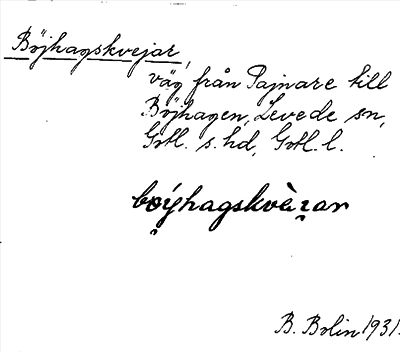 Böjhagskvejar,
väg från Pajnare till
Böjhagen, Levede sn,
Gotl. s. hd, Gotl. l.
bo̤ýhagskvàɪ̯ar
B. Bolin 1931.